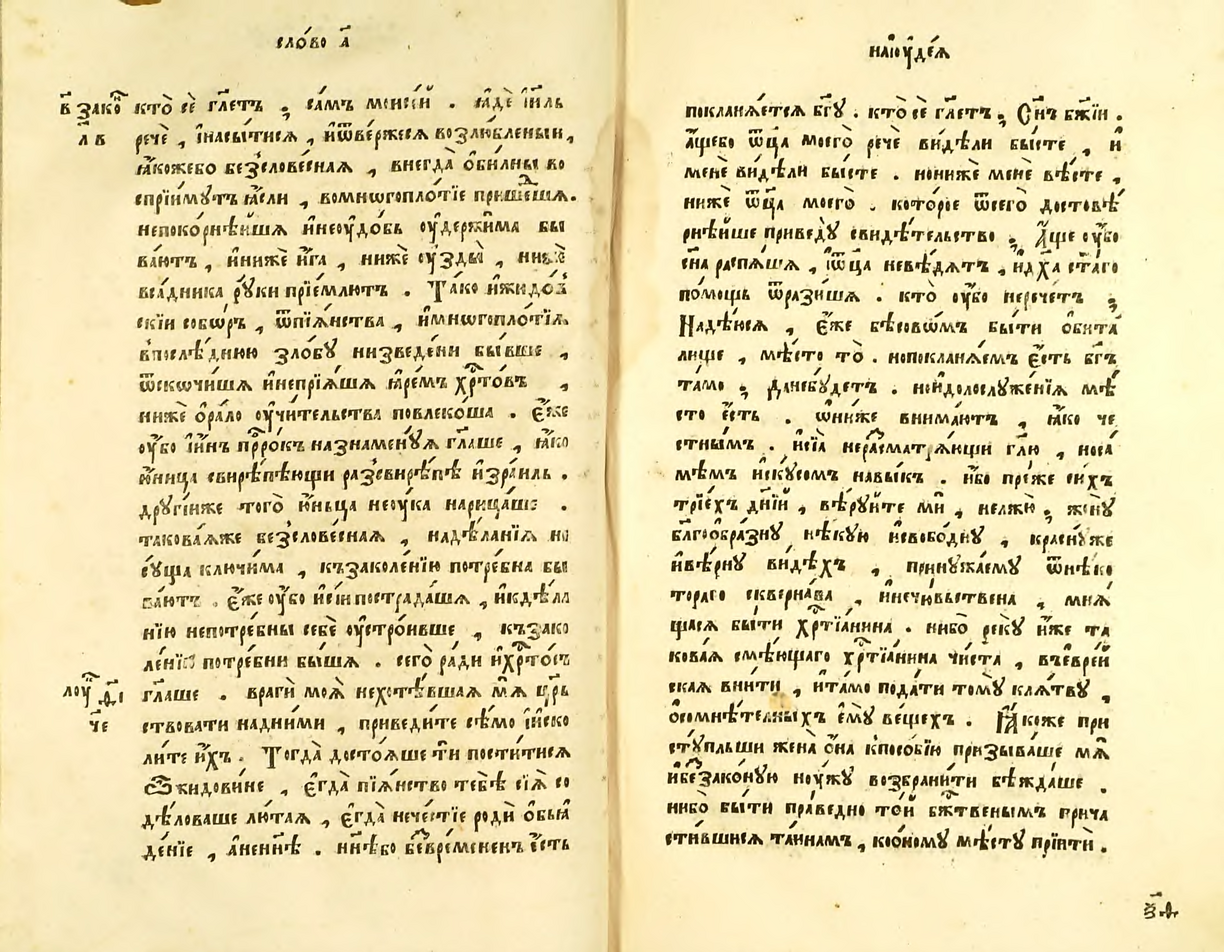 сло́во а҃
в҃ зако́н
л в
кто̀ сѐ гл҃етъ , са́мъ моисе́й . ꙗ҆дѐ і҆и҃ль
речѐ , і҆насы́тисѧ , и҆ѿве́ржесѧ возлю́бленыи ,
ꙗ҆́коже бо безслове́снаѧ , внегда̀ ѻ҆би́лны во
спрїи́мутъ ꙗ҆́сли , вомнѡгопло́тїе прише́дшѧ .
непокорнѣ́йшѧ и҆неꙋдо́бь ѹ҆держи́ма бы
ва́ютъ , и҆нижѐ и҆́га , нижѐ ѹ҆зды̀ , нижѐ
вса́дника рꙋки прїе́млютъ . Та́ко и҆жидо́в
скїи собѡ́ръ , ѿпїѧ́нства , и҆мнѡгопло́тїѧ
впослѣ́днюю ѕло́бꙋ низведе́ни бы́вше ,
ѿскочи́шѧ и҆непрїѧ́шѧ ꙗ҆ре́мъ хрⷭ҇то́въ ,
нижѐ ѻ҆ра́ло ѹ҆чи́тельства повлеко́ша . Є҆́же
ѹ҆́бо і҆́инъ прⷪ҇ро́къ назнаменꙋѧ гл҃аше , ꙗ҆́ко
ю҆́ница свирѣпѣ́ющи разсвирѣпѣ̀ і҆зра́иль .
дрꙋгі́иже того̀ ю҆ньца̀ неꙋ́ка нарица́ше .
такова́ѧже безслове́снаѧ , надѣ́ланїѧ не
сꙋ́ща ключи́ма , къзаколе́нїю потре́бна бы
ва́ютъ . є҆́же ѹ҆́бо и҆сі́и пострада́шѧ , и҆кдѣ́ла
нїю непотре́бны себѐ ѹ҆стро́ивше , къзако
ле́нїю потре́бни бы́шѧ . сего̀ ра́ди и҆хрⷭ҇то́съ
лоу́ , д҃і
гл҃аше . врагѝ моѧ̀ нехотѣ́вшаѧ мѧ̀ цр҃ь
че
ствовати надни́ми , приведи́те сѣ́мо і҆и҆сѣко
ли́те и҆́хъ . Тогда̀ достоѧ́ше ти пости́тисѧ
Ѽжидови́не , є҆гда̀ пїѧ́нство тебѣ̀ сїѧ̀ со
дѣ́ловаше лю́таѧ , є҆гда̀ нече́стїе родѝ ѻ҆бьꙗ
де́нїе , а҆нени́нѣ . ни́нѣбо безвре́мененъ є҆́сть
наі҆ꙋде́ѧ
покланѧ́етсѧ бг҃ꙋ . кто̀ сѐ гл҃етъ , Сн҃ъ бж҃їи .
а҆́щебо ѻ҆ц҃а̀ моего̀ речѐ ви́дѣли бы́сте , и҆
менѐ ви́дѣли бы́сте . нонижѐ менѐ вѣ́сте ,
нижѐ ѻ҆ц҃а̀ моего̀ . кото́рое ѿсего̀ достовѣ́
рнѣ́йше приведꙋ̀ свидѣ́тельство , А҆́ще ѹ҆́бо
сн҃а распѧ́шѧ , і҆ѻ҆ц҃а̀ невѣ́дѧтъ , и҆дх҃а ст҃а́го
по́мощь ѿрази́шѧ . кто̀ ѹ҆́бо нерече́тъ ,
Надѣ́юсѧ , є҆́же бѣсовѡ́мъ бы́ти ѻ҆бита́
лище , мѣ́сто то̀ . непоклонѧ́емъ є҆́сть бг҃ъ
та́мо , данебꙋ́детъ . ной҆долослꙋже́нїѧ мѣ́
сто є҆́сть . ѡ҆ни́же внима́ютъ , ꙗ҆́ко че
стны́мъ . и҆сїѧ̀ нерасматрѧ́ющи гл҃ю , носа
мѣ́мъ и҆скꙋ́сомъ навы́къ . и҆бо пре́же си́хъ
трїе́хъ дні́й , вѣ́рꙋйте мѝ , нелжꙋ̀ , женꙋ̀
бл҃гоѻбра́знꙋ нѣ́кꙋю исвобо́днꙋ , краснꙋ́же
и҆вѣ́рнꙋ ви́дѣхъ , принꙋжа́емꙋ ѿнѣ́ко
тораго скверна́ва , и҆нечювьствена , мнѧ́
щасѧ бы́ти хрⷭ҇тїани́на . нибо рекꙋ̀ и҆́же та
кова́ѧ смѣ́ющаго хрⷭ҇тїани́на чи́ста , въевре́й
скаѧ вни́ти , и҆та́мо пода́ти томꙋ̀ клѧ́твꙋ ,
ѻ҆сомни́тельныхъ є҆мꙋ̀ ве́щехъ . Ꙗ҆́коже при
стꙋ́пльши жена̀ ѻ҆на̀ кпосо́бїю призыва́ше мѧ̀
и҆безако́нꙋю нꙋ́жꙋ возбрани́ти бѣжда́ше .
нибо бы́ти пра́ведно то́й бжⷭ҇твеннымъ прича
сти́вшисѧ та́инамъ , коѻ́номꙋ мѣ́стꙋ прїити́ .
ѯ҃ѳ